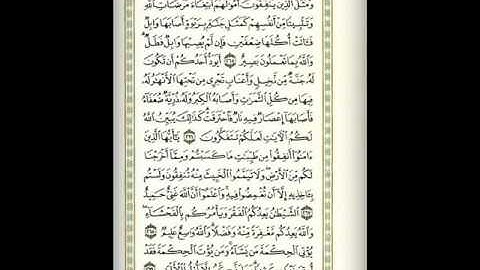 وَمَثَلُ ٱلَّذِينَ يُنفِقُونَ أَمْوَٰلَهُمُ ٱبْتِغَآءَ مَرْضَاتِ ٱللَّهِ
وَتَثْبِيتًا مِّنْ أَنفُسِهِمْ كَمَثَلِ جَنَّةٍۭ بِرَبْوَةٍ أَصَابَهَا وَابِلٌ
فَـَٔاتَتْ أُكُلَهَا ضِعْفَيْنِ فَإِن لَّمْ يُصِبْهَا وَابِلٌ فَطَلٌّ ۗ
وَٱللَّهُ بِمَا تَعْمَلُونَ بَصِيرٌ ﴿٢٦٥﴾ أَيَوَدُّ أَحَدُكُمْ أَن تَكُونَ
لَهُۥ جَنَّةٌ مِّن نَّخِيلٍ وَأَعْنَابٍ تَجْرِى مِن تَحْتِهَا ٱلْأَنْهَٰرُ لَهُۥ
فِيهَا مِن كُلِّ ٱلثَّمَرَٰتِ وَأَصَابَهُ ٱلْكِبَرُ وَلَهُۥ ذُرِّيَّةٌ ضُعَفَآءُ
فَأَصَابَهَآ إِعْصَارٌ فِيهِ نَارٌ فَٱحْتَرَقَتْ ۗ كَذَٰلِكَ يُبَيِّنُ ٱللَّهُ
لَكُمُ ٱلْـَٔايَٰتِ لَعَلَّكُمْ تَتَفَكَّرُونَ ﴿٢٦٦﴾ يَٰٓأَيُّهَا ٱلَّذِينَ
ءَامَنُوٓا۟ أَنفِقُوا۟ مِن طَيِّبَٰتِ مَا كَسَبْتُمْ وَمِمَّآ أَخْرَجْنَا
لَكُم مِّنَ ٱلْأَرْضِ ۖ وَلَا تَيَمَّمُوا۟ ٱلْخَبِيثَ مِنْهُ تُنفِقُونَ وَلَسْتُم
بِـَٔاخِذِيهِ إِلَّآ أَن تُغْمِضُوا۟ فِيهِ ۚ وَٱعْلَمُوٓا۟ أَنَّ ٱللَّهَ غَنِىٌّ حَمِيدٌ
﴿٢٦٧﴾ ٱلشَّيْطَٰنُ يَعِدُكُمُ ٱلْفَقْرَ وَيَأْمُرُكُم بِٱلْفَحْشَآءِ ۖ
وَٱللَّهُ يَعِدُكُم مَّغْفِرَةً مِّنْهُ وَفَضْلًا ۗ وَٱللَّهُ وَٰسِعٌ عَلِيمٌ ﴿٢٦٨﴾
يُؤْتِى ٱلْحِكْمَةَ مَن يَشَآءُ ۚ وَمَن يُؤْتَ ٱلْحِكْمَةَ فَقَدْ